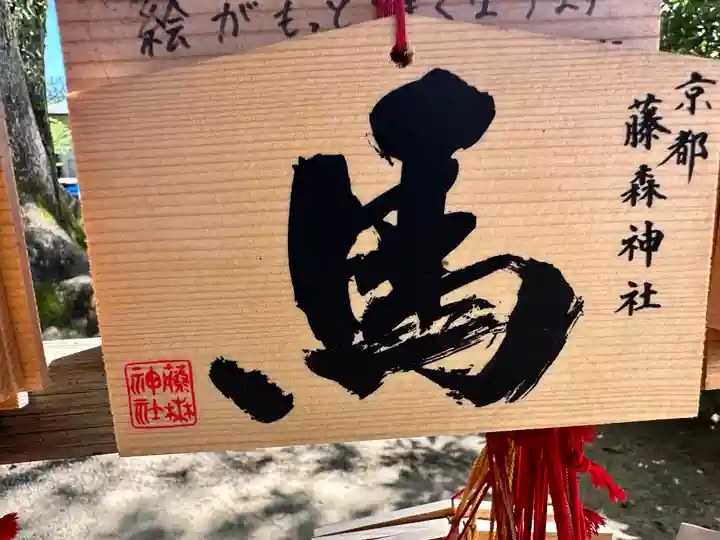 絵がもっと
馬
京都
藤森神社
藤森
神社